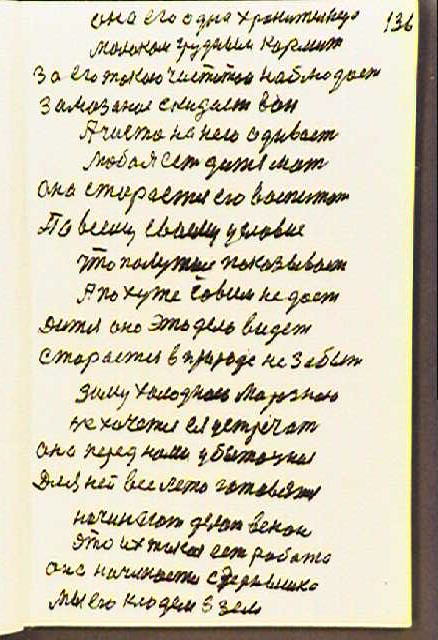 она его одна хранительница
136
молоком грудным кормит
За его такою чистотою наблюдает
Замазаное скидает вон
А чисто на него одивает
Любая ест дитя мат
Она старается его воспитат
По всему своему условие
Что получше показывает
А похуже совсем не дает
Дитя оно это дело видет
Старается в природе не забыт
Зиму холодною марзною
не хочется ея устречат
она перед нами убыточная
Для ней все лето готовятся
начинают делат веник
Это их такая ест работа
они начинается с
Мы его кладем з зем